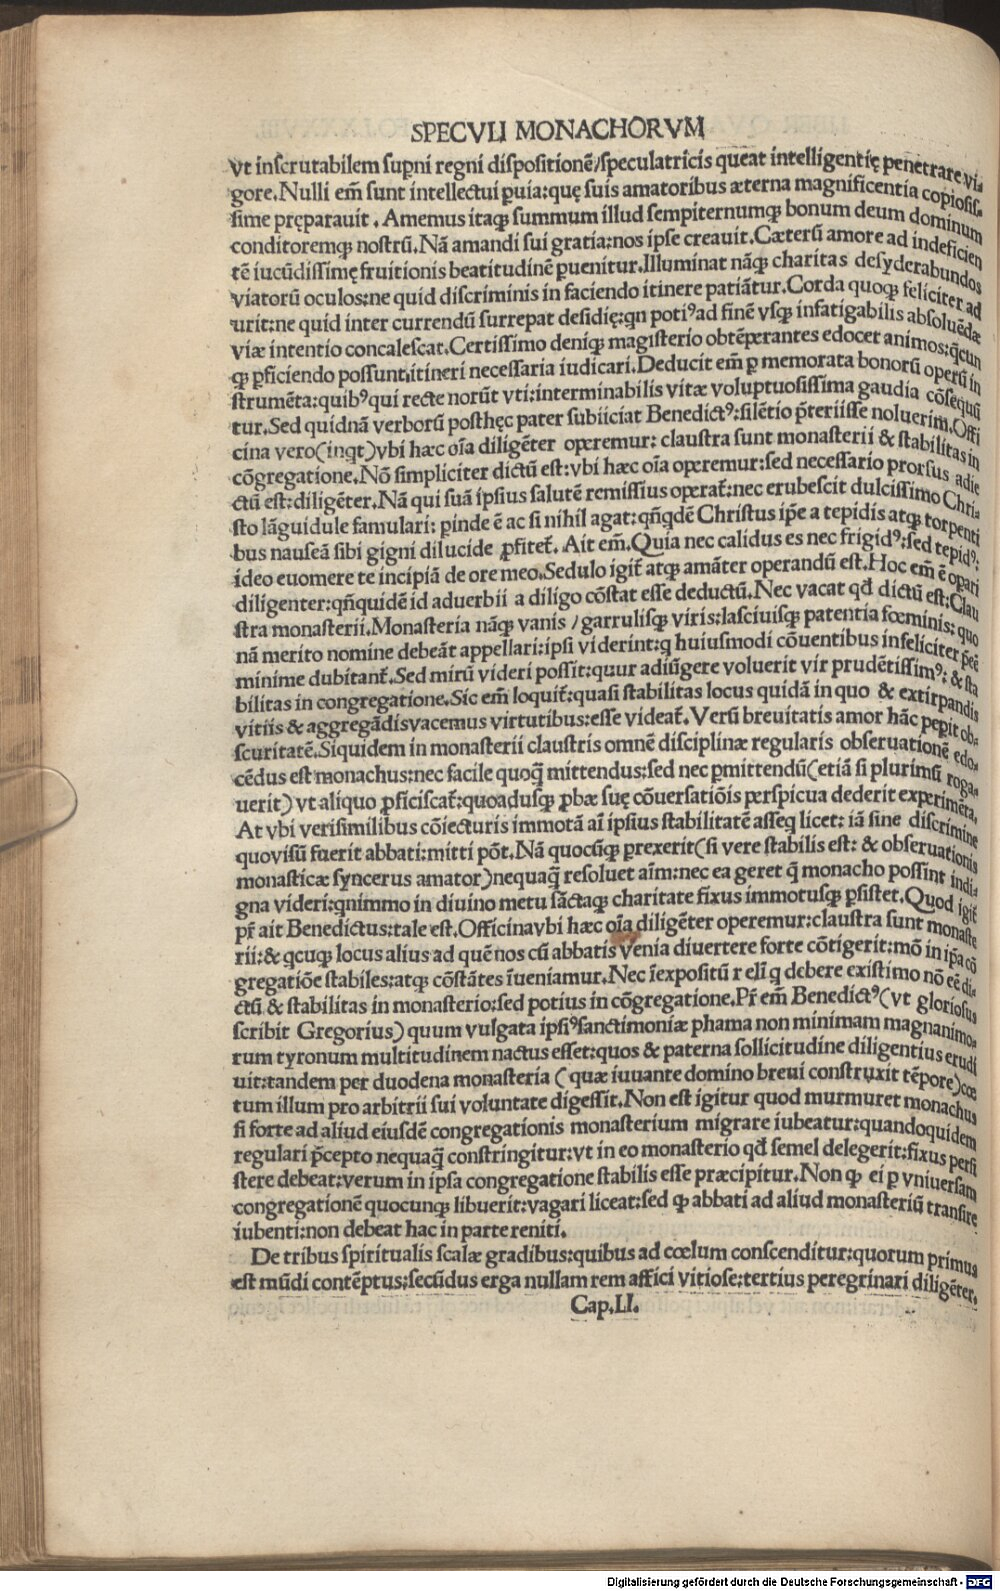 SPECVLI MONACHORVM
vt inscrutabilem suꝑni regni dispositionē/speculatricis queat intelligentię penetrare vi-
gore. Nulli em̄ sunt intellectui ꝑuia: quę suis amatoribus æterna magnificentia copiosis-
sime pręparauit. Amemus itaqꝫ summum illud sempiternumqꝫ bonum deum dominum
conditoremqꝫ nostrū. Nā amandi sui gratia: nos ipse creauit. Cæterū amore ad indeficien
tē iucūdissimę fruitionis beatitudinē ꝑuenitur. Illuminat nāqꝫ charitas desyderabundos
viatorū oculos: ne quid discriminis in faciendo itinere patiātur. Corda quoqꝫ feliciter ad
urit: ne quid inter currendū surrepat desidię: qn poti⁹ ad finē vsqꝫ infatigabilis absoluēdæ
viæ intentio concalescat. Certissimo deniqꝫ magisterio obtēperantes edocet animos: q̄cun
qꝫ ꝓficiendo possunt itineri necessaria iudicari. Deducit em̄ ꝑ memorata bonorū operū in
strumēta: quib⁹ qui recte norūt vti: interminabilis vitæ voluptuosissima gaudia cōsequū
tur. Sed quidnā verborū posthęc pater subiiciat Benedict⁹: silētio p̄teriisse noluerim. Offi
cina vero (inqt) vbi hæc oīa diligēter operemur: claustra sunt monasterii & stabilitas in
cōgregatione. Nō simpliciter dictū est: vbi hæc oīa operemur: sed necessario prorsus adie
ctū est: diligēter. Nā qui suā ipsius salutē remissius operat̄: nec erubescit dulcissimo Chri-
sto lāguidule famulari: ꝑinde ē ac si nihil agat: qn̄qdē Christus ip̄e a tepidis atqꝫ torpenti
bus nauseā sibi gigni dilucide ꝓfitet̄. Ait em̄. Quia nec calidus es nec frigid⁹: sed tepid⁹:
ideo euomere te incipiā de ore meo. Sedulo igit̄ atqꝫ amāter operandū est. Hoc em̄ ē oꝑari
diligenter: qn̄quidē id aduerbii a diligo cōstat esse deductū. Nec vacat qd̄ dictū est: Clau
stra monasterii. Monasteria nāqꝫ vanis / garrulisqꝫ viris: lasciuisqꝫ patentia fœminis: quo
nā merito nomine debeāt appellari: ipsi viderint: q huiusmodi cōuentibus infeliciter p̄eē
minime dubitant̄. Sed mirū videri possit: quur adiūgere voluerit vir prudētissim⁹: & sta
bilitas in congregatione. Sic em̄ loquit̄: quasi stabilitas locus quidā in quo & extirpandis
vitiis & aggregādis vacemus virtutibus: esse videat̄. Verū breuitatis amor hāc peꝑit ob-
scuritatē. Siquidem in monasterii claustris omnē disciplinæ regularis obseruationē edo-
cēdus est monachus: nec facile quoq̄ mittendus: sed nec ꝑmittendū (etiā si plurimū roga-
uerit) vt aliquo ꝓficiscat̄: quoadusqꝫ ꝓbæ suę cōuersatiōis perspicua dederit experimēta.
At vbi verisimilibus cōiecturis immotā aī ipsius stabilitatē asseq licet: iā sine discrimine
quovisū fuerit abbati: mitti pōt. Nā quocūqꝫ ꝑrexerit (si vere stabilis est: & obseruationis
monasticæ syncerus amator) nequaq̄ resoluet aīm: nec ea geret q̄ monacho possint indi-
gna videri: qnimmo in diuino metu sāctaqꝫ charitate fixus immotusqꝫ ꝑsistet. Quod igit̄
pr̄ ait Benedictus: tale est. Officina vbi hæc oīa diligēter operemur: claustra sunt monaste
rii: & qcuqꝫ locus alius ad quē nos cū abbatis venia diuertere forte cōtigerit: mō in ip̄a cō
gregatiōe stabiles: atqꝫ cōstātes īueniamur. Nec īexpositū r elī q debere existimo nō eē di-
ctū & stabilitas in monasterio: sed potius in cōgregatione. Pr̄ em̄ Benedict⁹ (vt gloriosus
scribit Gregorius) quum vulgata ipsi⁹ sanctimoniæ phama non minimam magnanimo-
rum tyronum multitudinem nactus esset: quos & paterna sollicitudine diligentius erudi
uit: tandem per duodena monasteria (quæ iuuante domino breui construxit tēpore) cœ
tum illum pro arbitrii sui voluntate digessit. Non est igitur quod murmuret monachus
si forte ad aliud eiusdē congregationis monasterium migrare iubeatur: quandoquidem
regulari p̄cepto nequaq̄ constringitur: vt in eo monasterio qd̄ semel delegerit: fixus persi
stere debeat: verum in ipsa congregatione stabilis esse præcipitur. Non qꝫ ei ꝑ vniuersam
congregationē quocunqꝫ libuerit: vagari liceat: sed qꝫ abbati ad aliud monasteriū transire
iubenti: non debeat hac in parte reniti.
De tribus spiritualis scalæ gradibus: quibus ad cœlum conscenditur: quorum primus
est mūdi contēptus: secūdus erga nullam rem affici vitiose: tertius peregrinari diligēter.
Cap. LI.
Digitalisierung gefördert durch die Deutsche Forschungsgemeinschaft - DFG